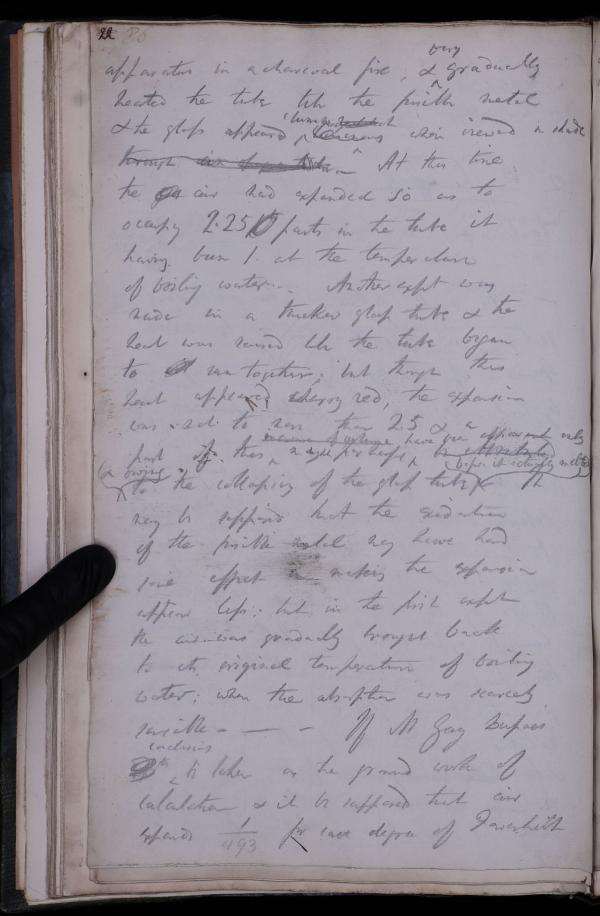 22 86
very
apparatus in a charcoal fire, & gradually
heated the tube till the fusible metal
& the glass appeared luminous when viewed in shade
through At this time
the air had expanded so as to
occupy 2.25 parts in the tube it
having been 1. at the temperature
of boiling water. Another expt was
made in a thicker glass tube & the
heat was raised till the tube began
to run together; but though this
heat appeared cherry red, the expansion
was not to more than 2.5 &
have been apparent only
part of this might perhaps
(or owing before it actually melted
to the collapsing of the glass tube It
may be supposed that the oxidation
of the fusible metal may have had
some effect in making the expansion
appear less: but in the first expt
the air was gradually brought back
to its original temperature of boiling
water; when the absorption was scarcely
sensible - — - If M Gay Lussac's
conclusions
be taken as the ground work of
calculation & it be supposed that air
expands 1/493 for each degree of Farenheit